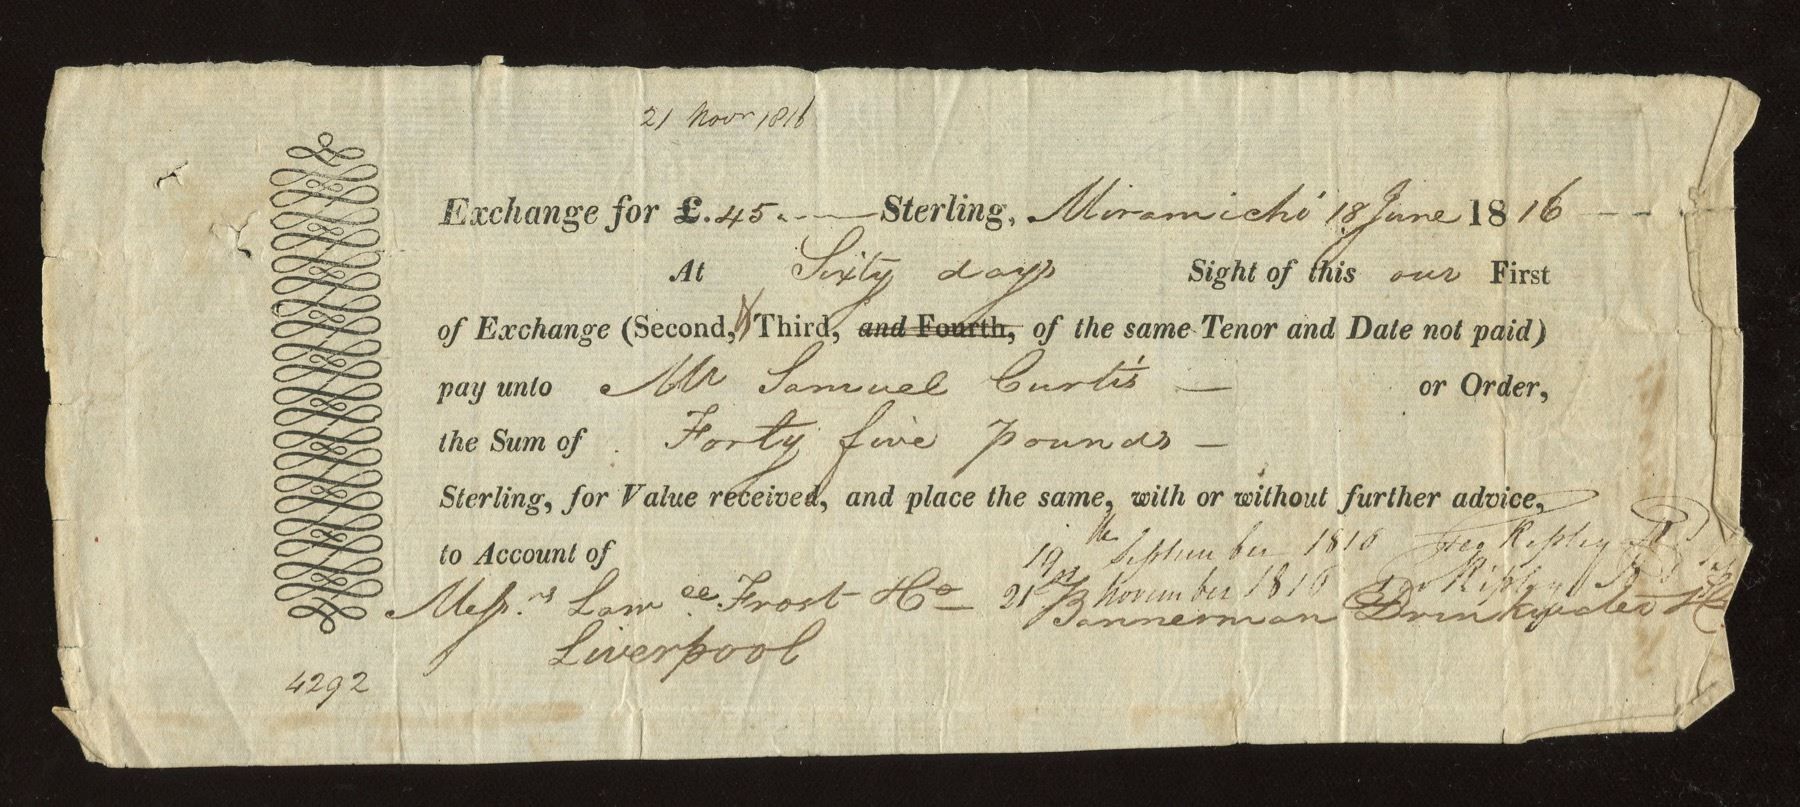 21 Novr 1816
Exchange for £. 45 Sterling, Miramichi 18 June 1816
At Sixty days Sight of this our First
of Exchange (Second, & Third, and Fourth, of the same Tenor and Date not paid)
pay unto Mr Samuel Curtis or Order,
the Sum of Forty five pounds
Sterling, for Value received, and place the same, with or without further advice,
to Account of
19th September 1816 Ripley
21st November 1816 Ripley
Messrs. Lawce Frost & Co Bannerman Drinkwater & Co
Liverpool
4292